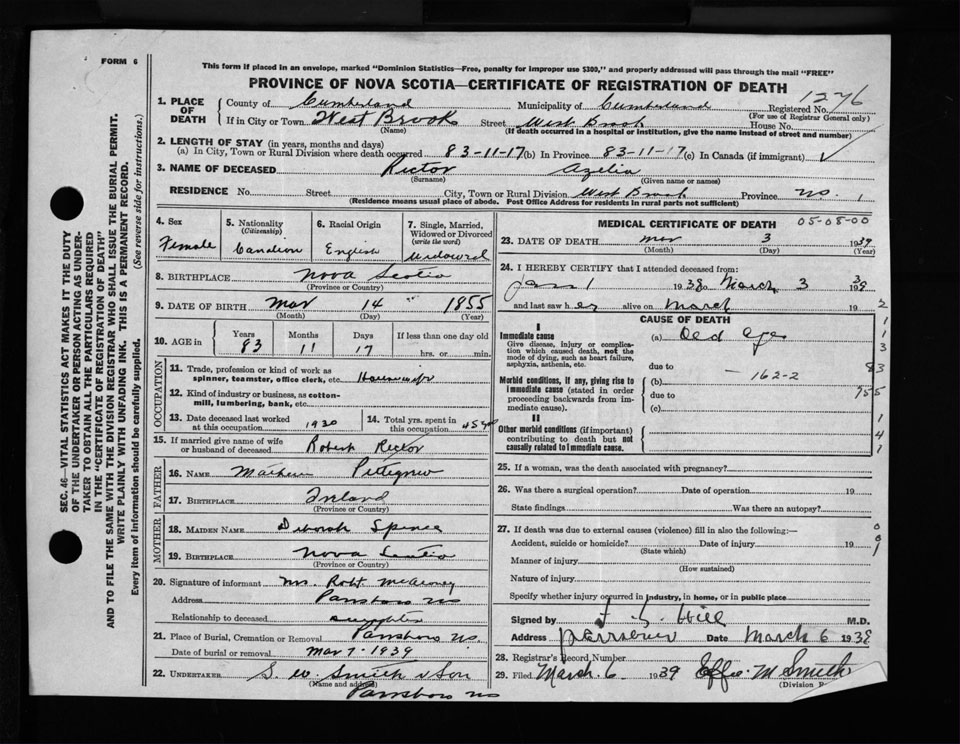 FORM 6
This form if placed in an envelope, marked "Dominion Statistics—Free, penalty for improper use $300," and properly addressed will pass through the mail "FREE"
PROVINCE OF NOVA SCOTIA—CERTIFICATE OF REGISTRATION OF DEATH
1. PLACE OF DEATH
County of Cumberland Municipality of Cumberland Registered No. 1276
(For use of Registrar General only)
If in City or Town West Brook Street West Brook House No.
(Name) (If death occurred in a hospital or institution, give the name instead of street and number)
2. LENGTH OF STAY (in years, months and days)
(a) In City, Town or Rural Division where death occurred 83-11-17 (b) In Province 83-11-17 (c) In Canada (if immigrant)
3. NAME OF DECEASED Rector Azelia
(Surname) (Given name or names)
RESIDENCE No. Street City, Town or Rural Division West Brook Province NS.
(Residence means usual place of abode. Post Office Address for residents in rural parts not sufficient)
4. Sex
Female
5. Nationality
(Citizenship)
Canadian
6. Racial Origin
English
7. Single, Married, Widowed or Divorced
(write the word)
Widowed
8. BIRTHPLACE Nova Scotia
(Province or Country)
9. DATE OF BIRTH Mar 14 1855
(Month) (Day) (Year)
10. AGE in Years Months Days If less than one day old
83 11 17 hrs. or min.
OCCUPATION
11. Trade, profession or kind of work as spinner, teamster, office clerk, etc. Housewife
12. Kind of industry or business, as cotton-mill, lumbering, bank, etc.
13. Date deceased last worked at this occupation 1930
14. Total yrs. spent in this occupation 45
15. If married give name of wife or husband of deceased Robert Rector
FATHER
16. NAME Mathew Pettigrew
17. BIRTHPLACE Ireland
(Province or Country)
MOTHER
18. MAIDEN NAME Deborah Spence
19. BIRTHPLACE Nova Scotia
(Province or Country)
20. Signature of informant Mrs. Robt
Address Parrsboro NS
Relationship to deceased daughter
21. Place of Burial, Cremation or Removal Parrsboro NS.
Date of burial or removal Mar 7 - 1939
22. UNDERTAKER S. W. Smith & Son
(Name and address)
Parrsboro NS
MEDICAL CERTIFICATE OF DEATH
05-08-00
23. DATE OF DEATH Mar 3 1939
(Month) (Day) (Year)
24. I HEREBY CERTIFY that I attended deceased from:
Jan 1 1938 March 3 39
and last saw her alive on March
CAUSE OF DEATH
I
Immediate cause
Give disease, injury or complication which caused death, not the mode of dying, such as heart failure, asphyxia, asthenia, etc.
(a) Old Age
due to
Morbid conditions, if any, giving rise to immediate cause (stated in order proceeding backwards from immediate cause).
(b) - 162-2
due to
(c)
II
Other morbid conditions (if important) contributing to death but not causally related to immediate cause.
2
1
1
3
83
955
1
4
1
25. If a woman, was the death associated with pregnancy?
26. Was there a surgical operation? Date of operation 19
State findings Was there an autopsy?
27. If death was due to external causes (violence) fill in also the following:—
Accident, suicide or homicide? Date of injury 19
(State which)
Manner of injury
(How sustained)
Nature of injury
Specify whether injury occurred in industry, in home, or in public place
0
0
1
Signed by Hill M.D.
Address Parrsboro Date March 6 1938
28. Registrar's Record Number
29. Filed March 6 1939 Effie M Smith
(Division
SEC. 46—VITAL STATISTICS ACT MAKES IT THE DUTY
OF THE UNDERTAKER OR PERSON ACTING AS UNDER-
TAKER TO OBTAIN ALL THE PARTICULARS REQUIRED
IN THE "CERTIFICATE OF REGISTRATION OF DEATH"
AND TO FILE THE SAME WITH THE DIVISION REGISTRAR WHO SHALL ISSUE THE BURIAL PERMIT.
WRITE PLAINLY WITH UNFADING INK. THIS IS A PERMANENT RECORD.
Every item of information should be carefully supplied. (See reverse side for instructions.)